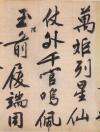 萬炬列星仙
仗外千官鳴佩
玉前履端用